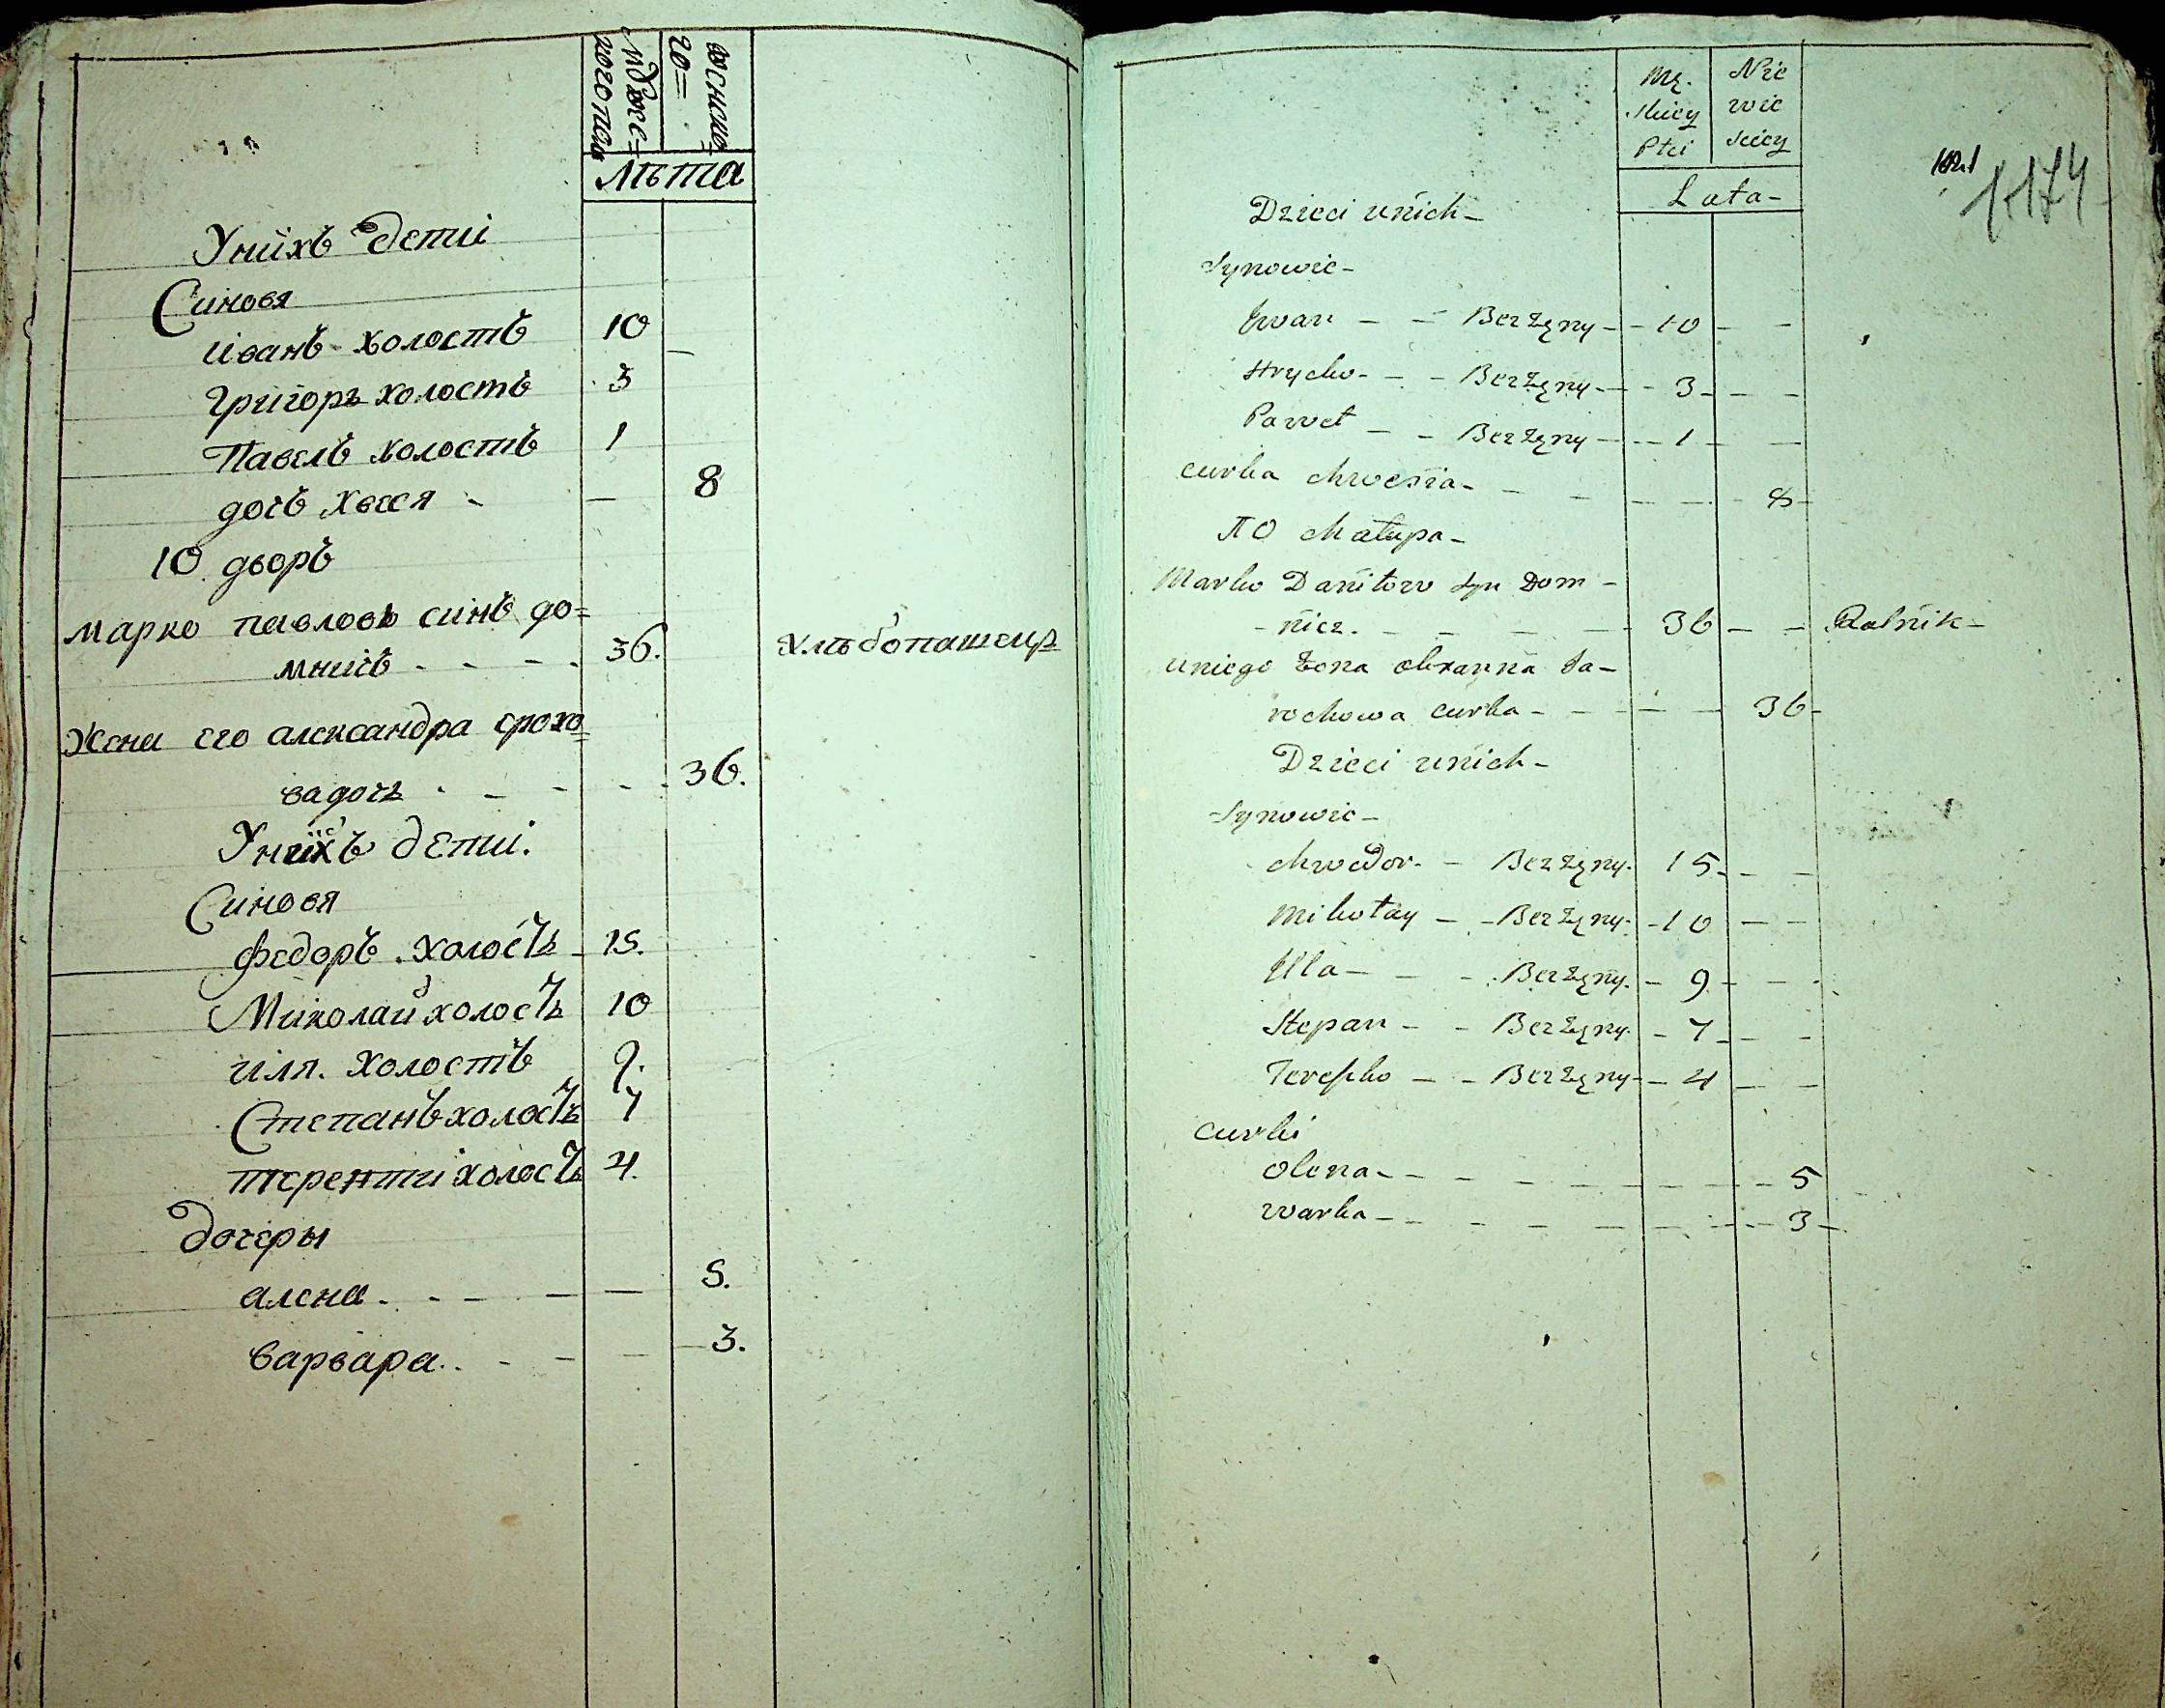 мужес=
кого пола
женско=
го=
лѣта
Унихъ дети
Синовя
иванъ холостъ 10 —
григоръ холостъ 3
Павелъ холостъ 1
дочъ хвеся - — 8
10 дворъ
марко павловъ синъ до=
мничъ - - - - 36. хлѣбопашецъ
Жена его александра ерохо=
ва дочъ - - - - - 36.
Унихъ дети.
Синовя
федоръ холостъ - 15.
Миколай холостъ 10
иля. холостъ 9.
Степанъ холостъ 7
терентиі холостъ 4.
дочеры
алена - - - — — 5.
варвара - - - — — 3.
Mę-
skiey
Płci
Nie
wie
sciey
Lata-
1174
Dzieci unich-
Synowie-
Jwan - - Bezżęny - - 10 - -
Hrycko - - - Bezżęny - - 3 - - -
Paweł - - Bezżęny - - - 1 - -
curka Chwesia - - - - - - 8 -
ПО Chałupa -
Marko Daniłow Syn Dom -
- nicz. - - - - - 36 - - Rolnik -
uniego żona Olxanna Ja -
rochowa curka - - - - 36 -
Dzieci unich -
Synowie -
Chwedor - - Bezżęny. 15 - - -
Mikołay - - Bezżęny. - 10 - -
Illa - - - Bezżęny. - 9 - - -
Stepan - - Bezżęny. - 7 - - -
Tereszko - - Bezżęny - - 4 - -
curki
Olena - - - - - - - - - 5
Warka - - - - - - - - - 3 -